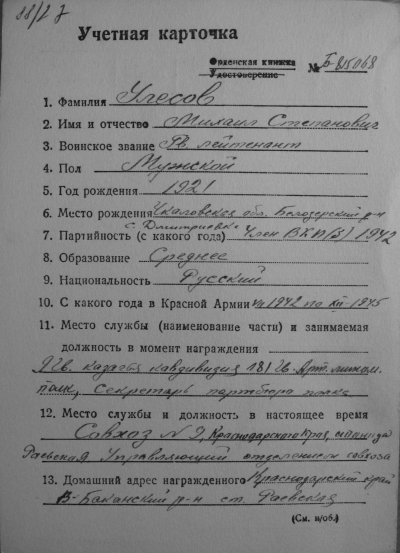 88/27
Учетная карточка
Орденская книжка
Удостоверение № Б-815068
1. Фамилия Улесов
2. Имя и отчество Михаил Степанович
3. Воинское звание Гв. лейтенант
4. Пол Мужской
5. Год рождения 1921
6. Место рождения Чкаловская обл. Белозерский р-н
с. Дмитриевка
7. Партийность (с какого года) Член ВКП(б) 1942
8. Образование Среднее
9. Национальность Русский
10. С какого года в Красной Армии 1942 по XII-1945
11. Место службы (наименование части) и занимаемая
должность в момент награждения
9 Гв. казачья кавдивизия 181 Гв. Арт. мином.
полк, Секретарь партбюро полка
12. Место службы и должность в настоящее время
Совхоз № 2, Краснодарского Края, станица
Раевская Управляющий отделением совхоза
13. Домашний адрес награжденного Краснодарский край
В-Баканский р-н ст. Раевская
(См. н/об.)